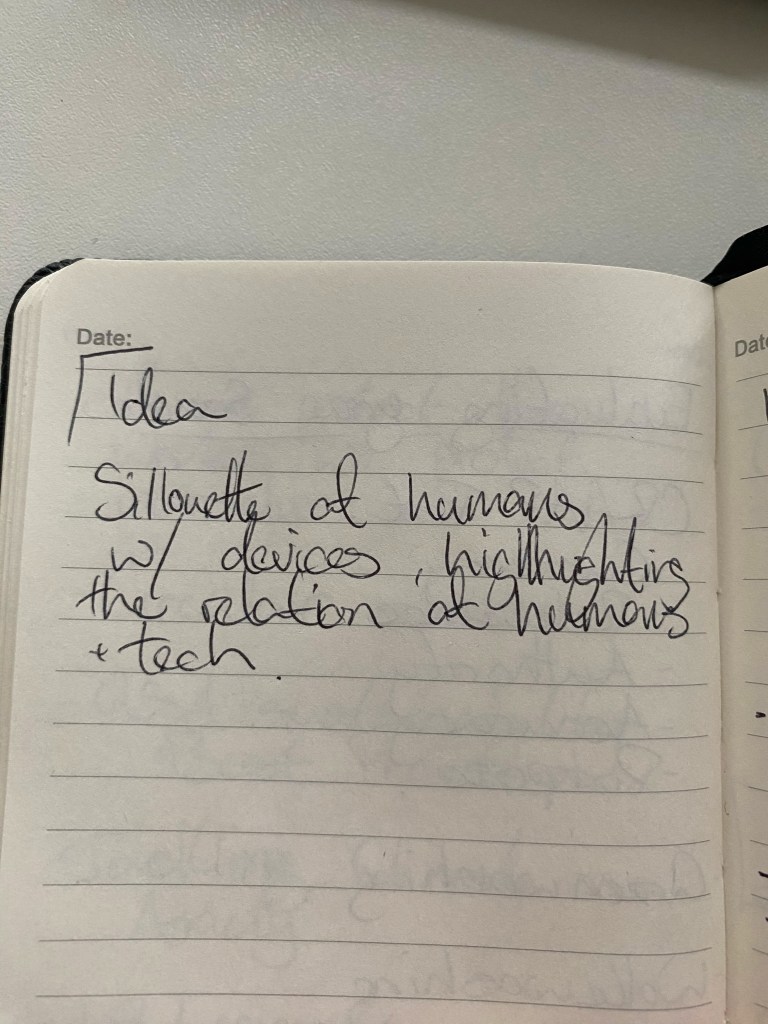 Date:
Idea
Sillouette of humans
w/ devices, highlhighting
the relation of humans
+ tech.
Date